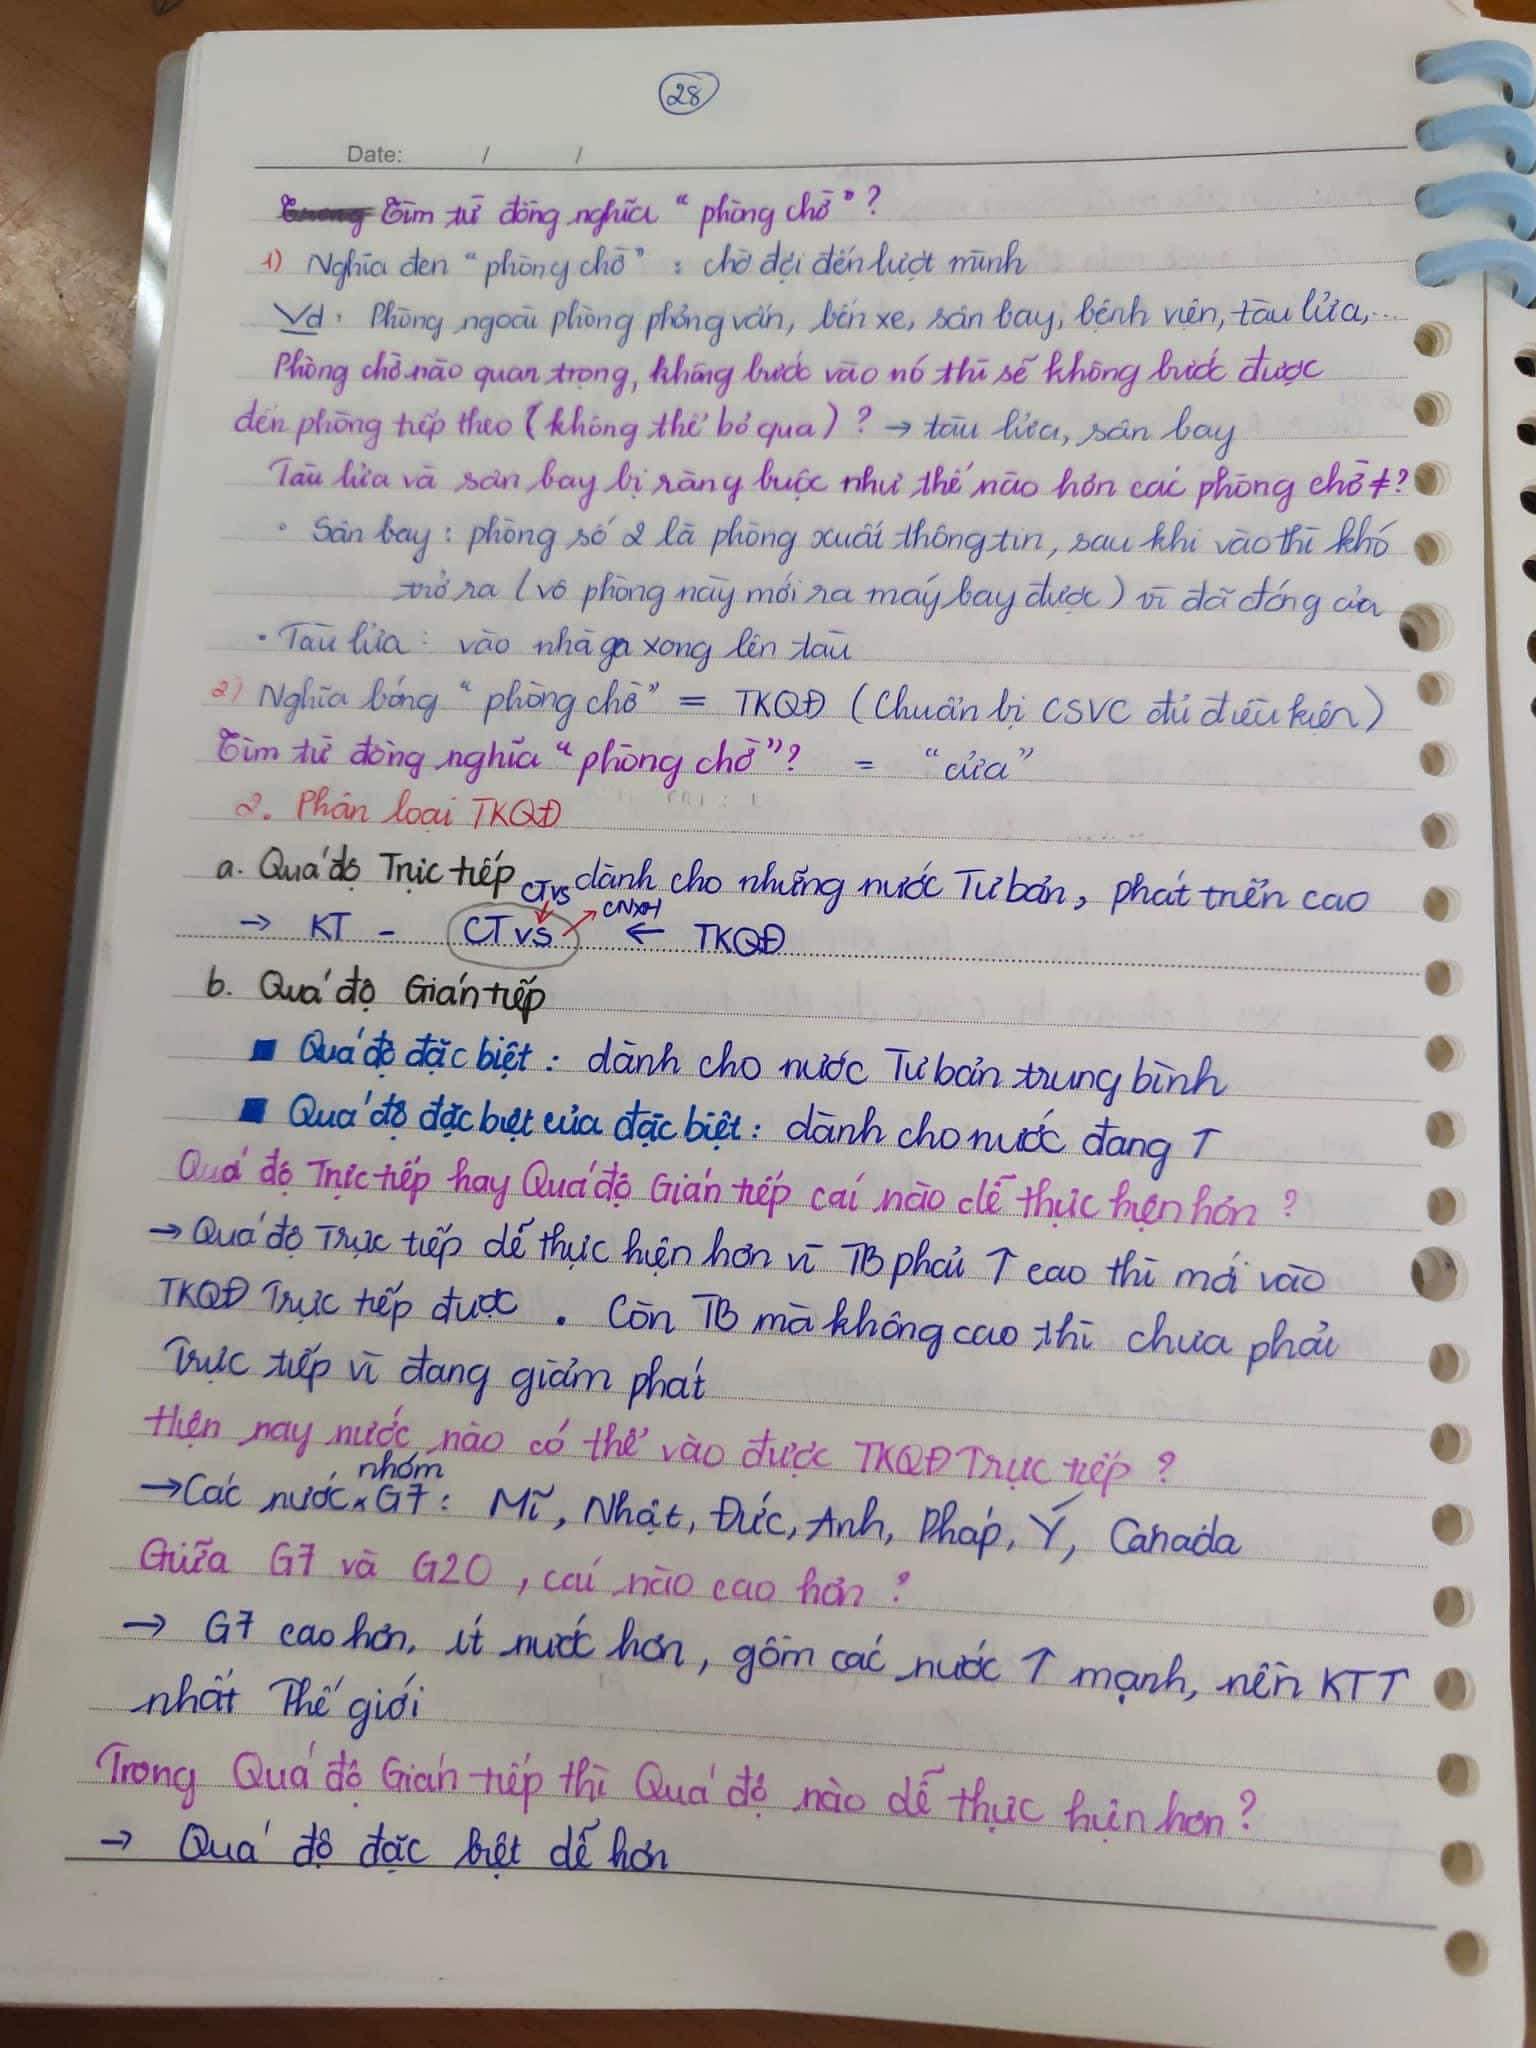 28
Date: / /
Tìm từ đồng nghĩa "phòng chờ"?
1) Nghĩa đen "phòng chờ" : chờ đợi đến lượt mình
Vd: Phòng ngoài phòng phỏng vấn, bến xe, sân bay, bệnh viện, tàu lửa,...
Phòng chờ nào quan trọng, không bước vào nó thì sẽ không bước được
đến phòng tiếp theo (không thể bỏ qua)? → tàu lửa, sân bay
Tàu lửa và sân bay bị ràng buộc như thế nào hơn các phòng chờ ≠?
• Sân bay: phòng số 2 là phòng xuất thông tin, sau khi vào thì khó
trở ra (vô phòng này mới ra máy bay được) vì đã đóng cửa
• Tàu lửa: vào nhà ga xong lên tàu
2) Nghĩa bóng "phòng chờ" = TKQĐ (Chuẩn bị CSVC đủ điều kiện)
Tìm từ đồng nghĩa "phòng chờ"? = "cửa"
2. Phân loại TKQĐ
a. Quá độ Trực tiếp dành cho những nước Tư bản, phát triển cao
CTvs CNXH
→ KT - CTvs ← TKQĐ
b. Quá độ Gián tiếp
■ Quá độ đặc biệt: dành cho nước Tư bản trung bình
■ Quá độ đặc biệt của đặc biệt: dành cho nước đang ↑
Quá độ Trực tiếp hay Quá độ Gián tiếp cái nào dễ thực hiện hơn?
→ Quá độ Trực tiếp dễ thực hiện hơn vì TB phải ↑ cao thì mới vào
TKQĐ Trực tiếp được. Còn TB mà không cao thì chưa phải
Trực tiếp vì đang giảm phát
Hiện nay nước nào có thể vào được TKQĐ Trực tiếp?
→ Các nước nhóm G7: Mĩ, Nhật, Đức, Anh, Pháp, Ý, Canada
Giữa G7 và G20, cái nào cao hơn?
→ G7 cao hơn, ít nước hơn, gồm các nước ↑ mạnh, nền KTT
nhất Thế giới
Trong Quá độ Gián tiếp thì Quá độ nào dễ thực hiện hơn?
→ Quá độ đặc biệt dễ hơn